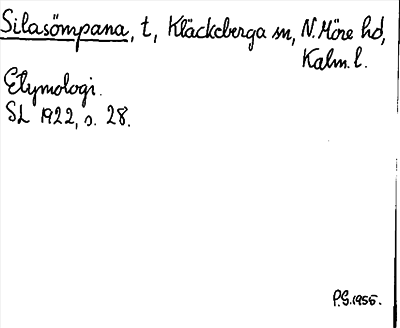 Silasömpana, t, Kläckeberga sn, N. Möre hd,
Kalm. l.
Etymologi.
SL 1922, s. 28.
P.G. 1955.